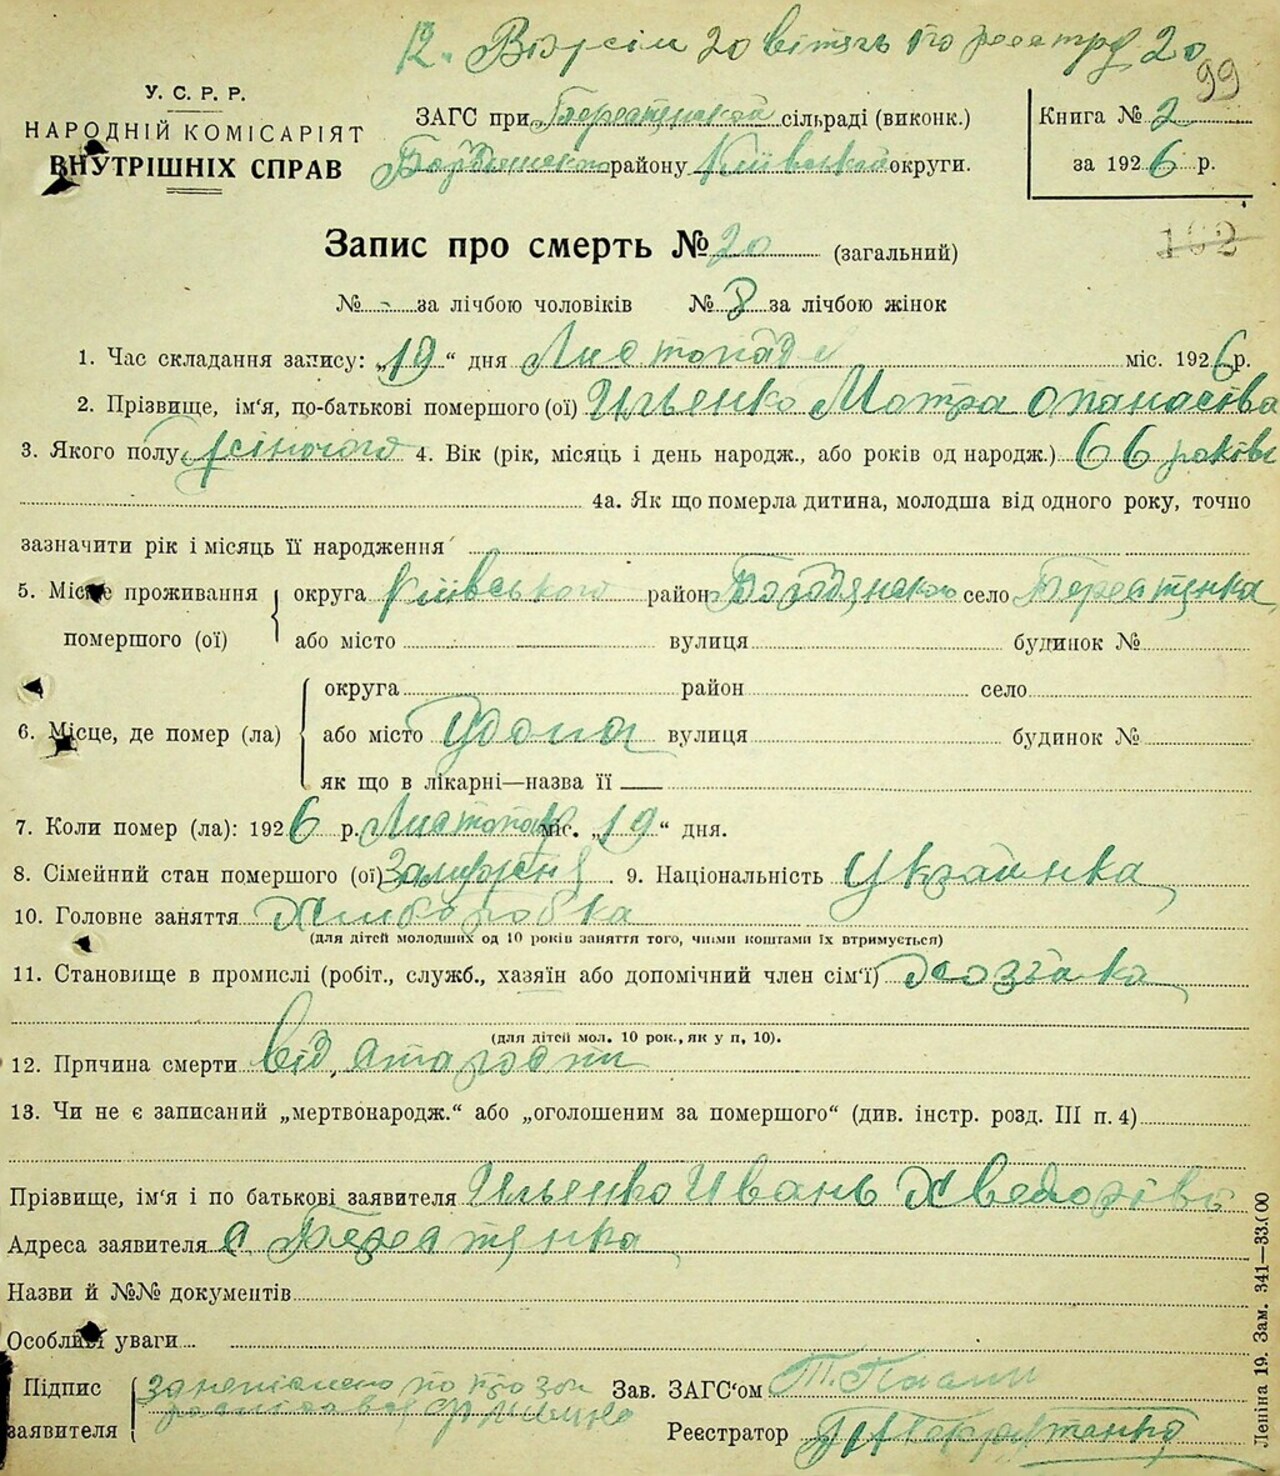 12. 20 витяг по реєстру 20
99
У. С. Р. Р.
НАРОДНІЙ КОМІСАРІЯТ
ВНУТРІШНІХ СПРАВ
ЗАГС при сільраді (виконк.)
району Київської округи.
Книга № 2
за 1926 р.
102
Запис про смерть № 20 (загальний)
№ - за лічбою чоловіків № 8 за лічбою жінок
1. Час складання запису: „19“ дня Листопада міс. 1926 р.
2. Прізвище, ім'я, по-батькові помершого (ої) Ильенко Мотра опанасівна
3. Якого полу жіночого 4. Вік (рік, місяць і день народж., або років од народж.) 66 років
4а. Як що померла дитина, молодша від одного року, точно
зазначити рік і місяць її народження
5. Місце проживання помершого (ої)
округа Київського район Бородянского село Берестянка
або місто вулиця будинок №
6. Місце, де помер (ла)
округа район село
або місто Удома вулиця будинок №
як що в лікарні—назва її
7. Коли помер (ла): 1926 р. Листопада міс. „19“ дня.
8. Сімейний стан помершого (ої) Замужня 9. Національність Украінка
10. Головне заняття Хліборобка
(для дітей молодших од 10 років заняття того, чиїми коштами їх втримується)
11. Становище в промислі (робіт., служб., хазяїн або допомічний член сім'ї) Хозяіка
(для дітей мол. 10 рок., як у п, 10).
12. Причина смерти від старости
13. Чи не є записаний „мертвонародж.“ або „оголошеним за помершого“ (див. інстр. розд. III п. 4)
Прізвище, ім'я і по батькові заявителя Ильенко Ивань Хведорівич
Адреса заявителя с. Берестянка
Назви й №№ документів
Особливі уваги
Підпис заявителя
Зав. ЗАГС'ом
Реєстратор
Леніна 19. Зам. 341—33.000